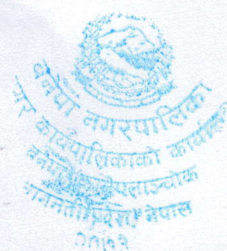 बनेपा नगरपालिका
नगर कार्यपालिकाको कार्यालय
बनेपा काभ्रेपलाञ्चोक
बागमती प्रदेश, नेपाल